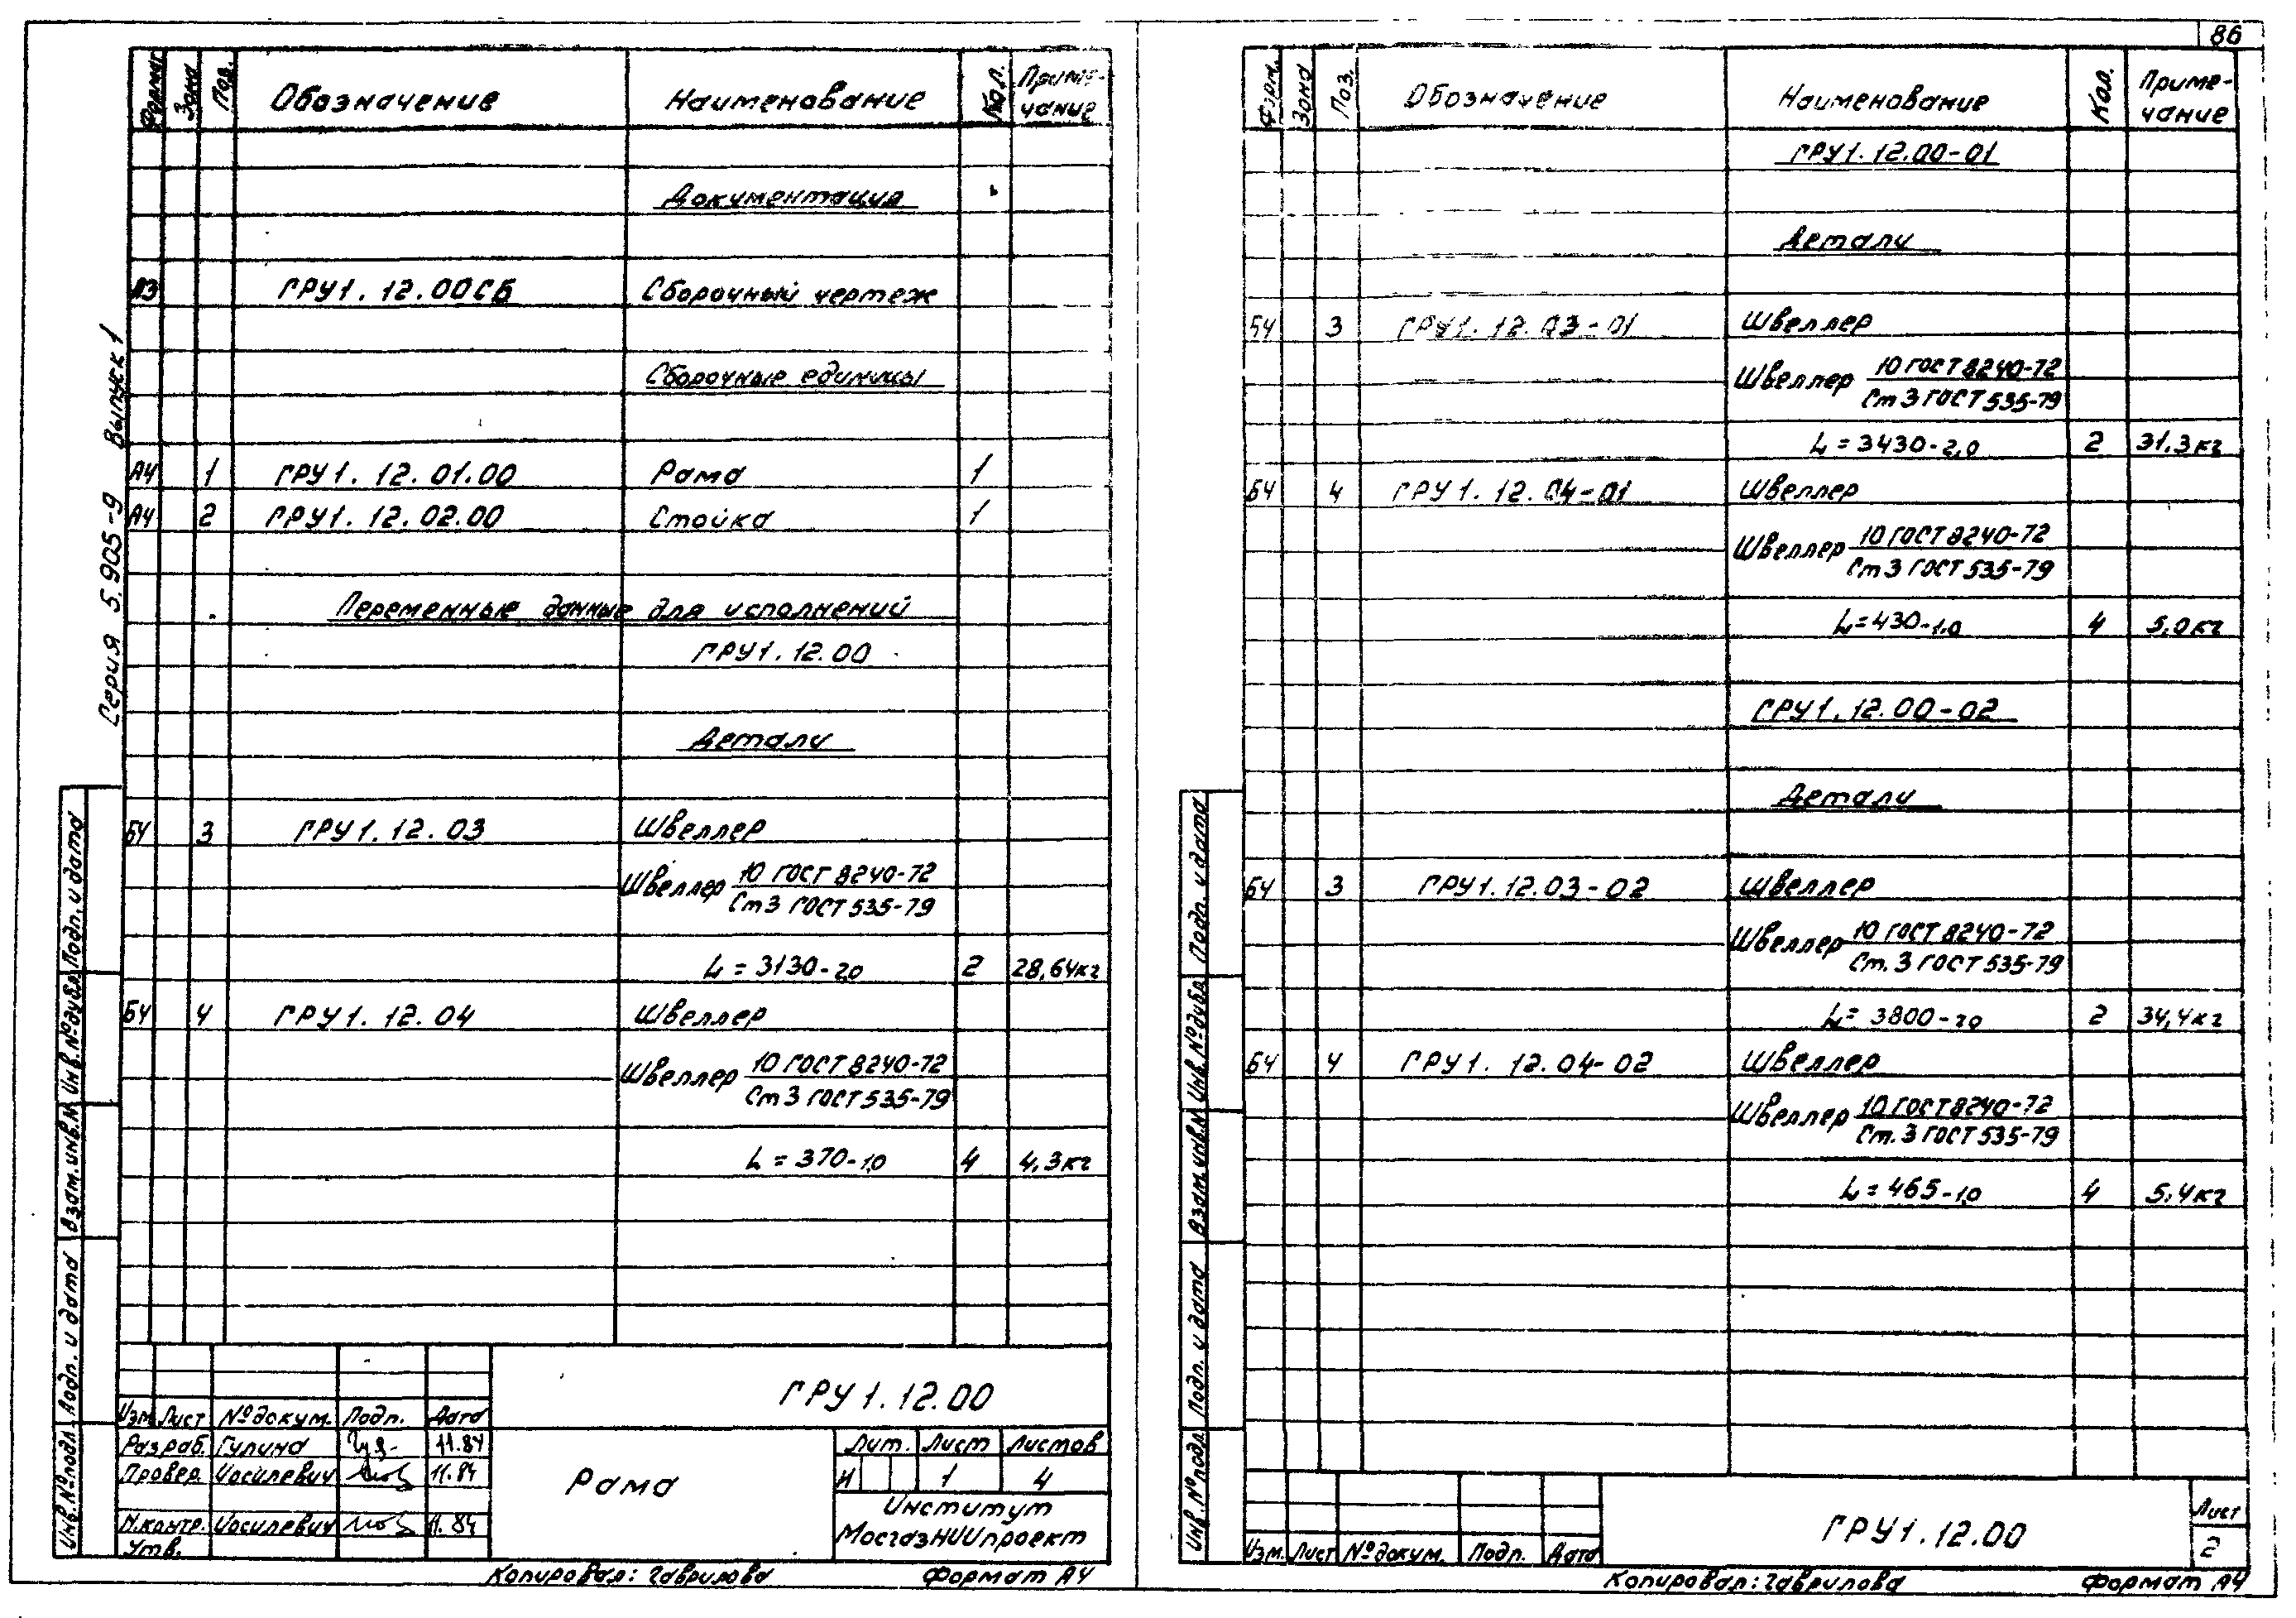 86
Серия 5.905-9 Выпуск 1
Формат Зона Поз. Обозначение Наименование Кол. Приме-
чание
Документация
А3 ГРУ1.12.00СБ Сборочный чертеж
Сборочные единицы
А4 1 ГРУ1.12.01.00 Рама 1
А4 2 ГРУ1.12.02.00 Стойка 1
Переменные данные для исполнений
ГРУ1.12.00
Детали
БЧ 3 ГРУ1.12.03 Швеллер
Швеллер 10 ГОСТ 8240-72
Ст 3 ГОСТ 535-79
L = 3130-2,0 2 28,64кг
БЧ 4 ГРУ1.12.04 Швеллер
Швеллер 10 ГОСТ 8240-72
Ст 3 ГОСТ 535-79
L = 370-1,0 4 4,3кг
Инв.№подл. Подп. и дата Взам.инв.№ Инв.№дубл. Подп. и дата
ГРУ1.12.00
Изм. Лист № докум. Подп. Дата
Разраб. Гулина 11.84
Провер. Иосилевич 11.84
Н.контр. Иосилевич 11.84
Утв.
Рама
Лит. Лист Листов
И 1 4
Институт
МосгазНИИпроект
Копировал: Гаврилова Формат А4
Форм. Зона Поз. Обозначение Наименование Кол. Приме-
чание
ГРУ1.12.00-01
Детали
БЧ 3 ГРУ1.12.03-01 Швеллер
Швеллер 10 ГОСТ 8240-72
Ст 3 ГОСТ 535-79
L = 3430-2,0 2 31,3кг
БЧ 4 ГРУ1.12.04-01 Швеллер
Швеллер 10 ГОСТ 8240-72
Ст 3 ГОСТ 535-79
L = 430-1,0 4 5,0кг
ГРУ1.12.00-02
Детали
БЧ 3 ГРУ1.12.03-02 Швеллер
Швеллер 10 ГОСТ 8240-72
Ст. 3 ГОСТ 535-79
L = 3800-2,0 2 34,4кг
БЧ 4 ГРУ1.12.04-02 Швеллер
Швеллер 10 ГОСТ 8240-72
Ст. 3 ГОСТ 535-79
L = 465-1,0 4 5,4кг
Инв.№подл. Подп. и дата Взам.инв.№ Инв.№дубл. Подп. и дата
Изм. Лист № докум. Подп. Дата
ГРУ1.12.00
Лист
2
Копировал: Гаврилова Формат А4